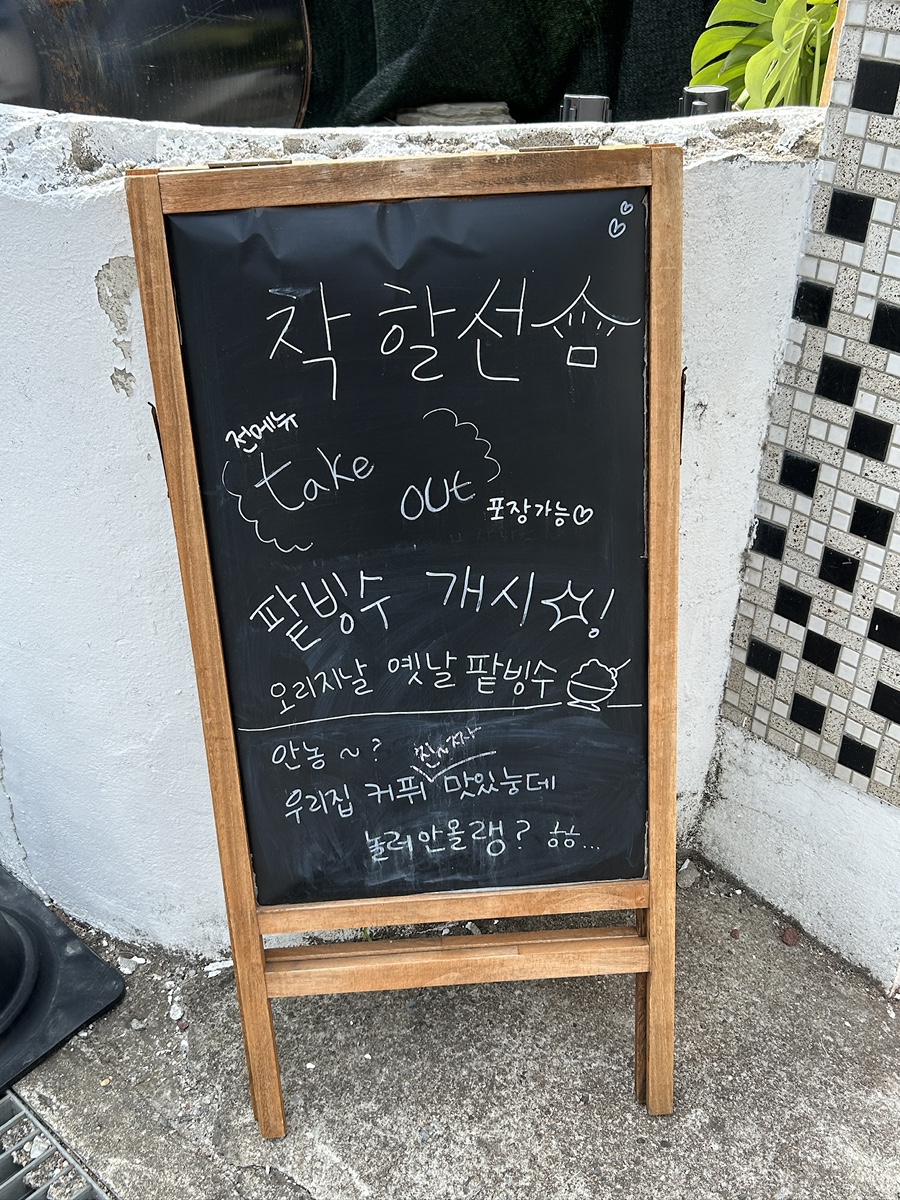 착할선숍
전메뉴
take out 포장가능♡
팥빙수 개시☆!
오리지날 옛날 팥빙수
안농~?
진~짜
우리집 커퓌 맛있눙데
놀러안올랭? ㅎㅎ...